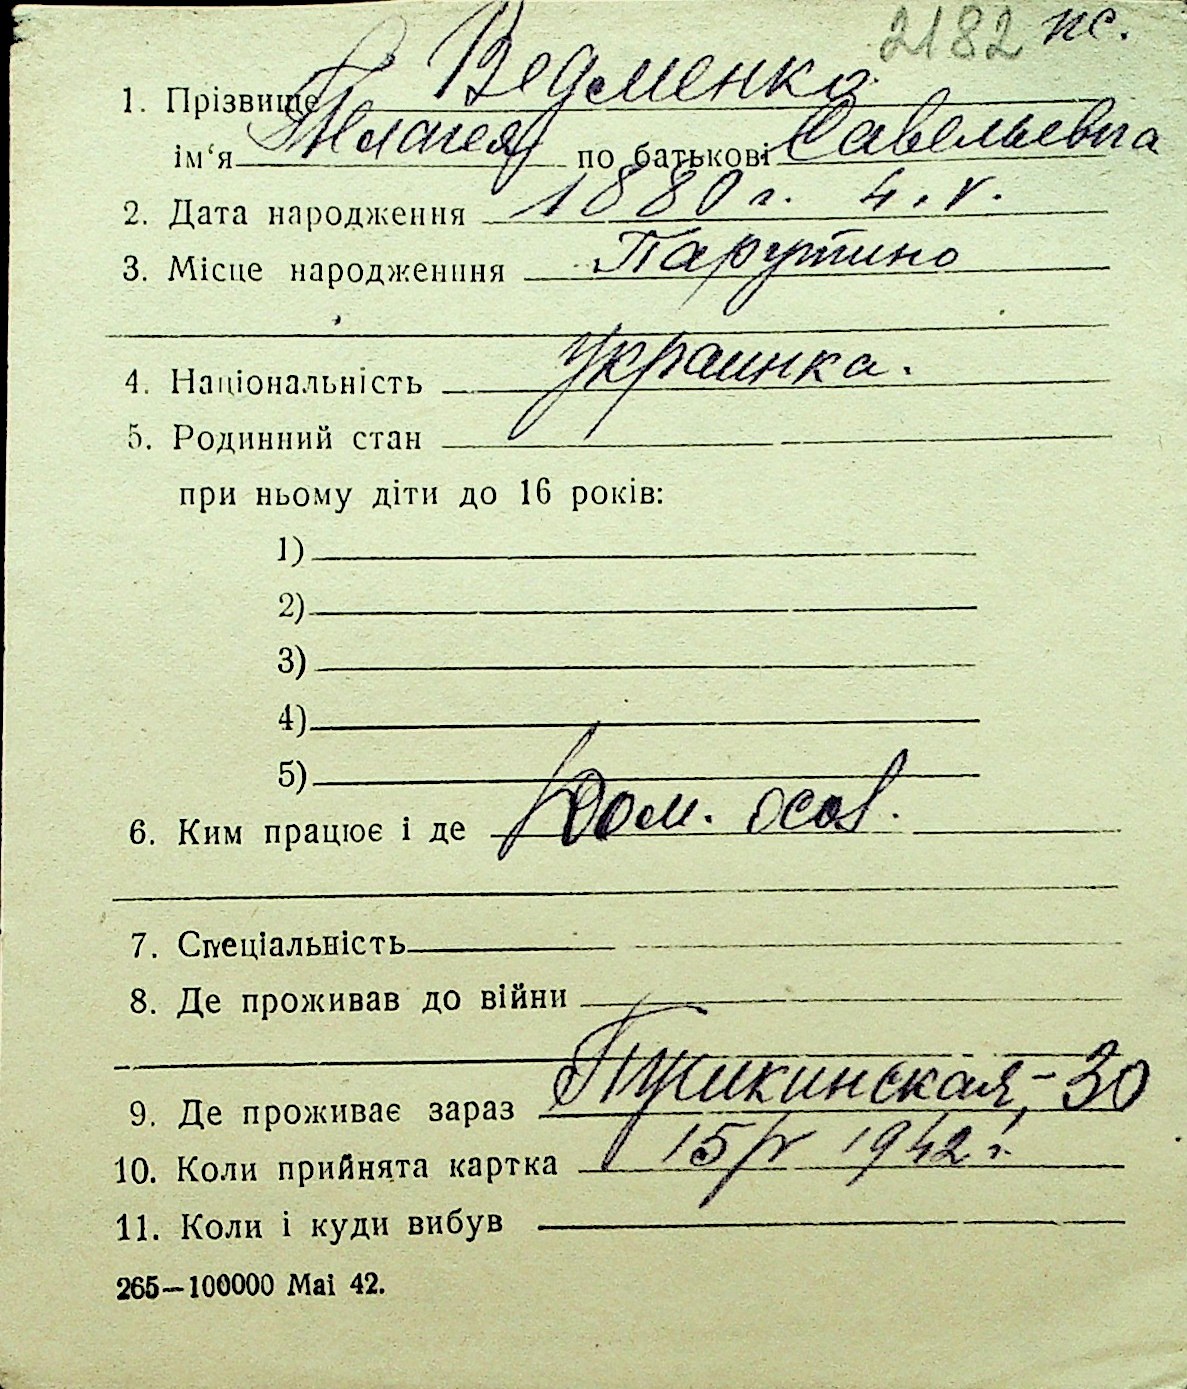 2182 пс.
1. Прізвище Ведменко
ім‘я Пелагея по батькові Савельевна
2. Дата народження 1880 г. 4. V.
3. Місце народженння Парутино
4. Національність Украинка.
5. Родинний стан
при ньому діти до 16 років:
1)
2)
3)
4)
5)
6. Ким працює і де Дом. особ.
7. Спеціальність
8. Де проживав до війни
9. Де проживає зараз Пушкинская, - 30
10. Коли прийнята картка 15/V 1942 г.
11. Коли і куди вибув
265—100000 Mai 42.